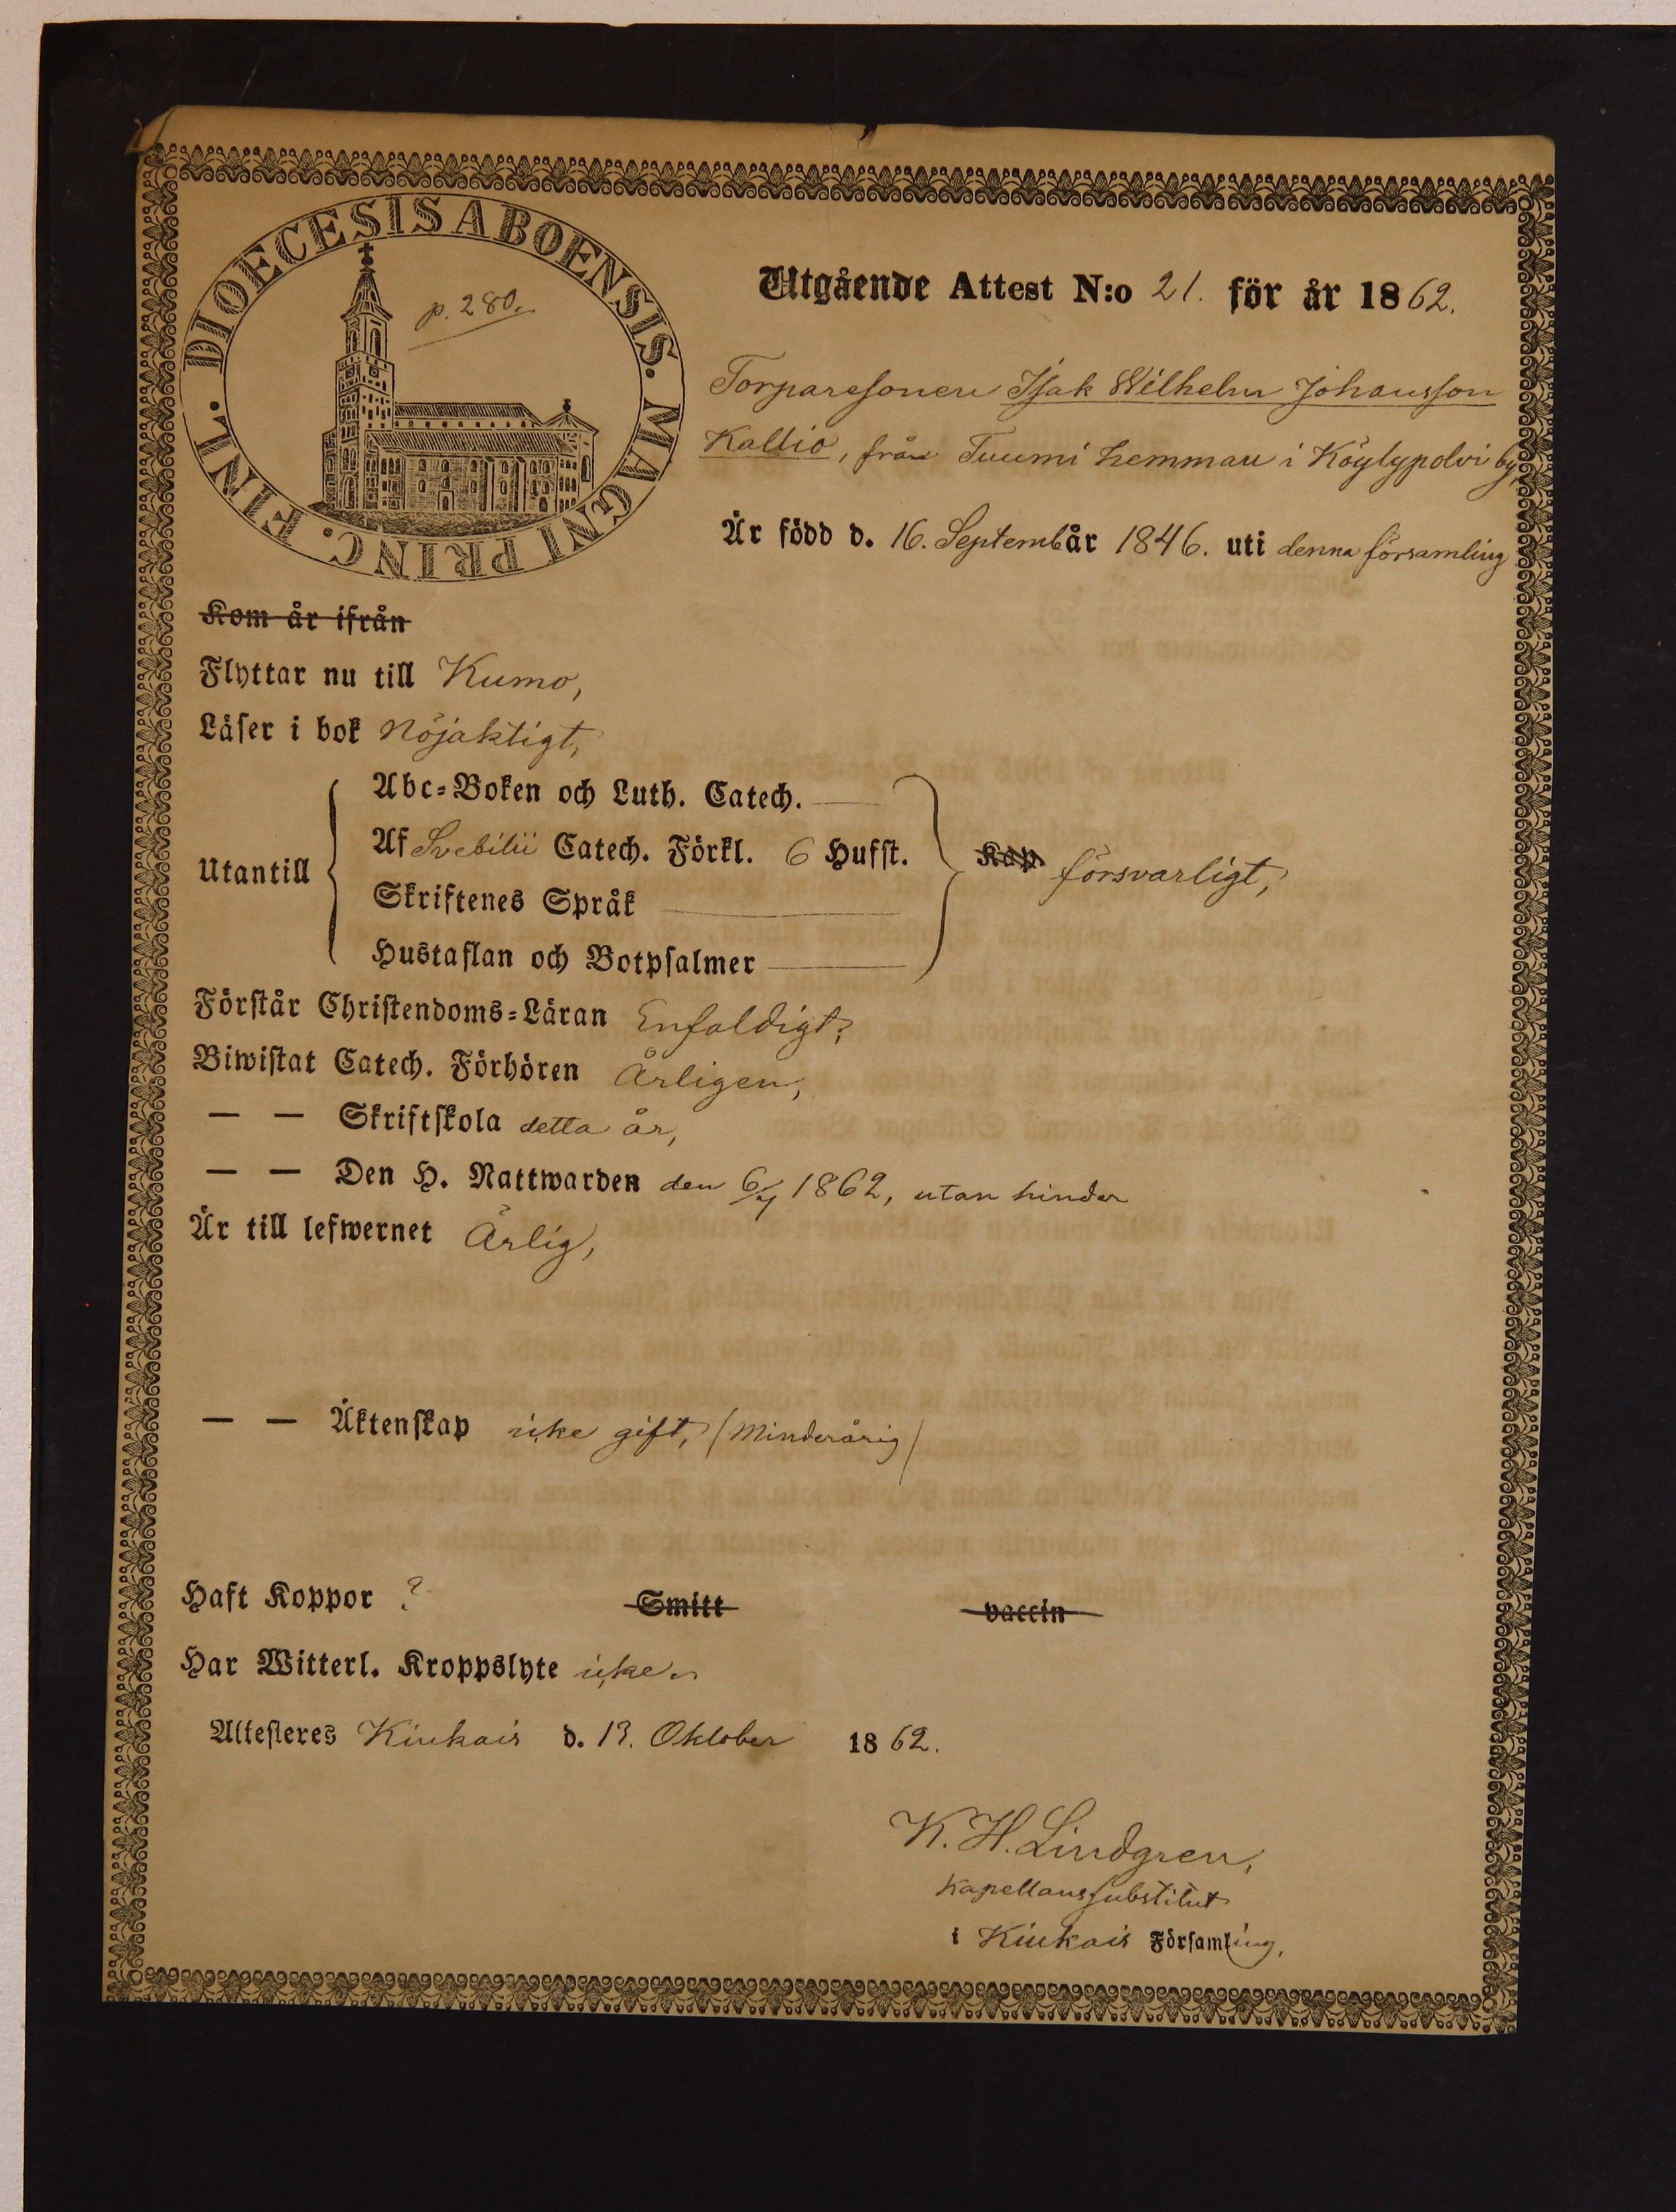 DIOECESIS ABOENSIS. MAGNI PRINC. FINL.
p. 280.
Utgående Attest N:o 21. för år 1862.
Torparesonen Isak Wilhelm Johansson
Kallio, från Tuumi hemman i Köylypolvi by,
Är född d. 16. Septemb år 1846. uti denna församling
Kom år ifrån
Flyttar nu till Kumo,
Läser i bok Nöjaktigt,
Utantill
Abc-Boken och Luth. Catech.
Af Svebilii Catech. Förkl. 6 Hufst.
Skriftenes Språk
Hustaflan och Botpsalmer
Kap försvarligt,
Förstår Christendoms-Läran Enfaldigt,
Biwistat Catech. Förhören Årligen,
— — Skriftskola detta år,
— — Den H. Nattwarden den 6/7 1862, utan hinder
Är till lefwernet Ärlig,
— — Äktenskap icke gift, (Minderårig)
Haft Koppor ? Smitt vaccin
Har Witterl. Kroppslyte icke.
Attesteres Kiukais d. 13. Oktober 1862.
K. H. Lindgren,
Kapellanssubstitut
i Kiukais Församling,